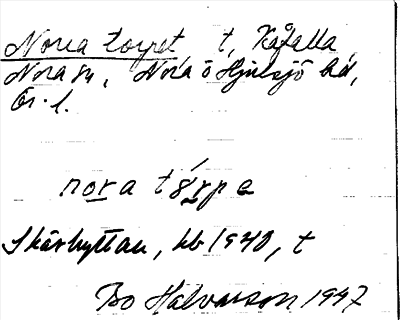 Norra torpet t, Kåfalla,
Nora sn, Nora o Hjulsjö bd,
Ör. l.
nora tórpe
Skärhyttan, hb 1940, t
Bo Halvarson 1947